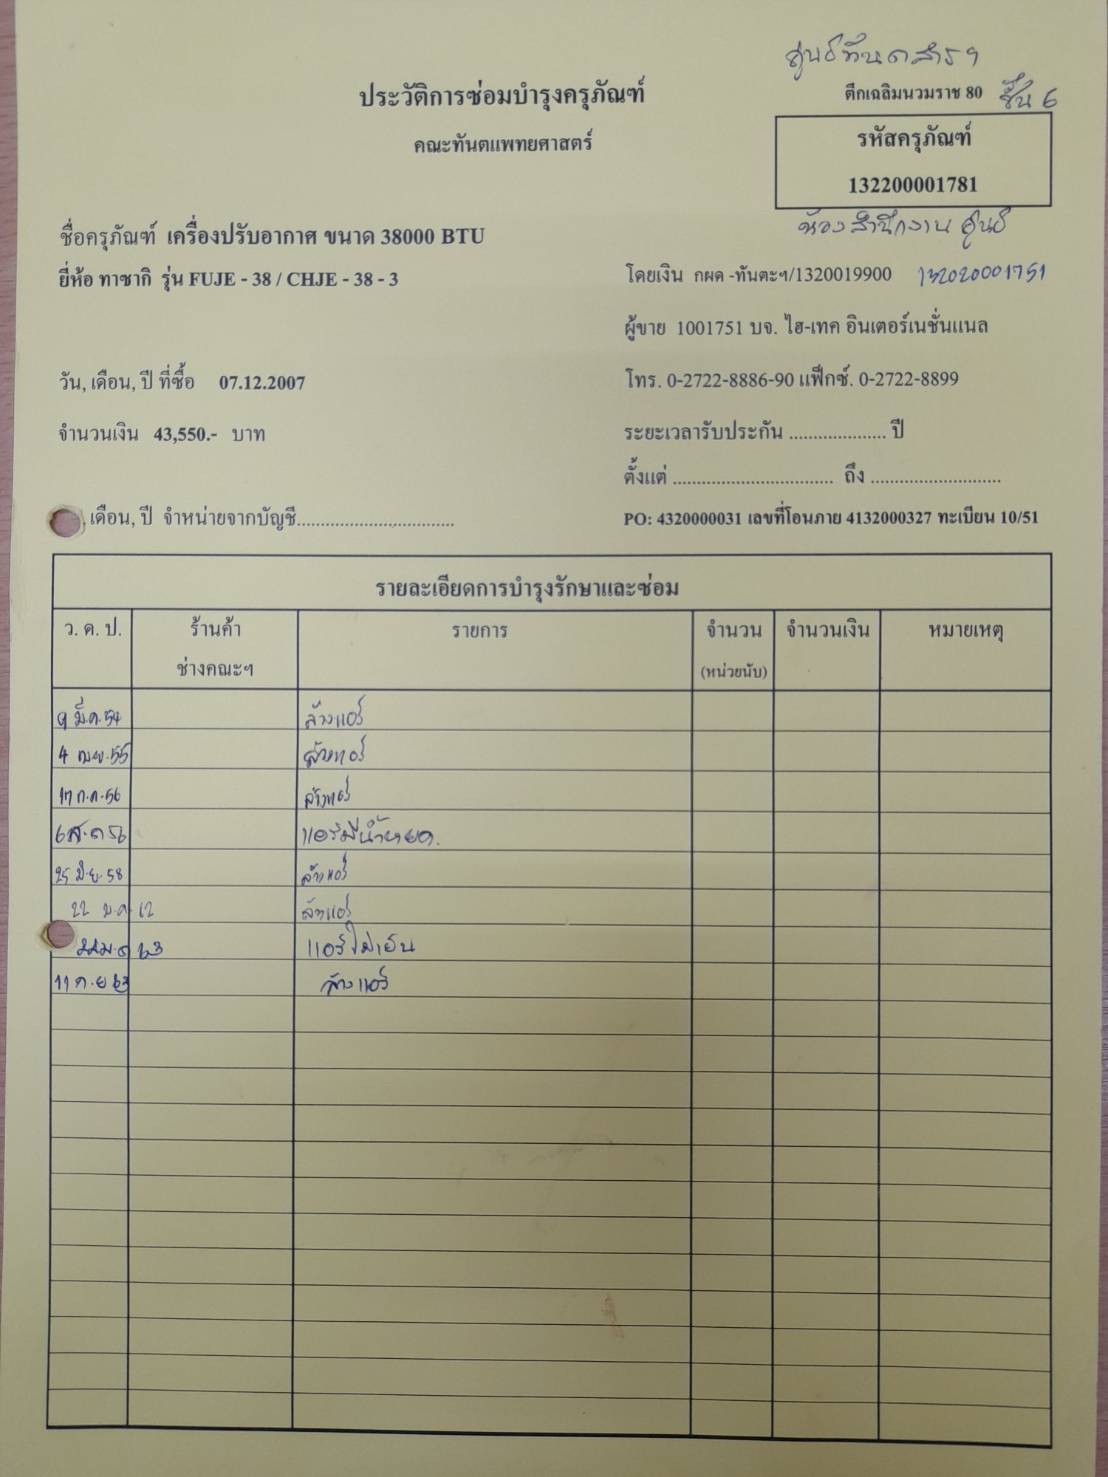 ศูนย์ทันตสารฯ
ประวัติการซ่อมบำรุงครุภัณฑ์
ตึกเฉลิมนวมราช 80 ชั้น 6
คณะทันตแพทยศาสตร์
รหัสครุภัณฑ์
132200001781
ห้องสำนักงาน ศูนย์
ชื่อครุภัณฑ์ เครื่องปรับอากาศ ขนาด 38000 BTU
ยี่ห้อ ทาซากิ รุ่น FUJE - 38 / CHJE - 38 - 3
โดยเงิน กผด -ทันตะฯ/1320019900 132020001751
ผู้ขาย 1001751 บจ. ไฮ-เทค อินเตอร์เนชั่นแนล
วัน, เดือน, ปี ที่ซื้อ 07.12.2007
โทร. 0-2722-8886-90 แฟ็กซ์. 0-2722-8899
จำนวนเงิน 43,550.- บาท
ระยะเวลารับประกัน .................... ปี
ตั้งแต่ ................................ ถึง ..........................
, เดือน, ปี จำหน่ายจากบัญชี................................
PO: 4320000031 เลขที่โอนภาย 4132000327 ทะเบียน 10/51
รายละเอียดการบำรุงรักษาและซ่อม
ว. ด. ป. ร้านค้า รายการ จำนวน จำนวนเงิน หมายเหตุ
ช่างคณะฯ (หน่วยนับ)
9 มี.ค. 54 ล้างแอร์
4 เม.ย. 55 ล้างแอร์
17 ก.ค. 56 ล้างแอร์
6 ส.ค 56 แอร์มีน้ำหยด.
25 มิ.ย. 58 ล้างแอร์
22 ม.ค 62 ล้างแอร์
63 แอร์ไม่เย็น
11 ก.ย 63 ล้างแอร์